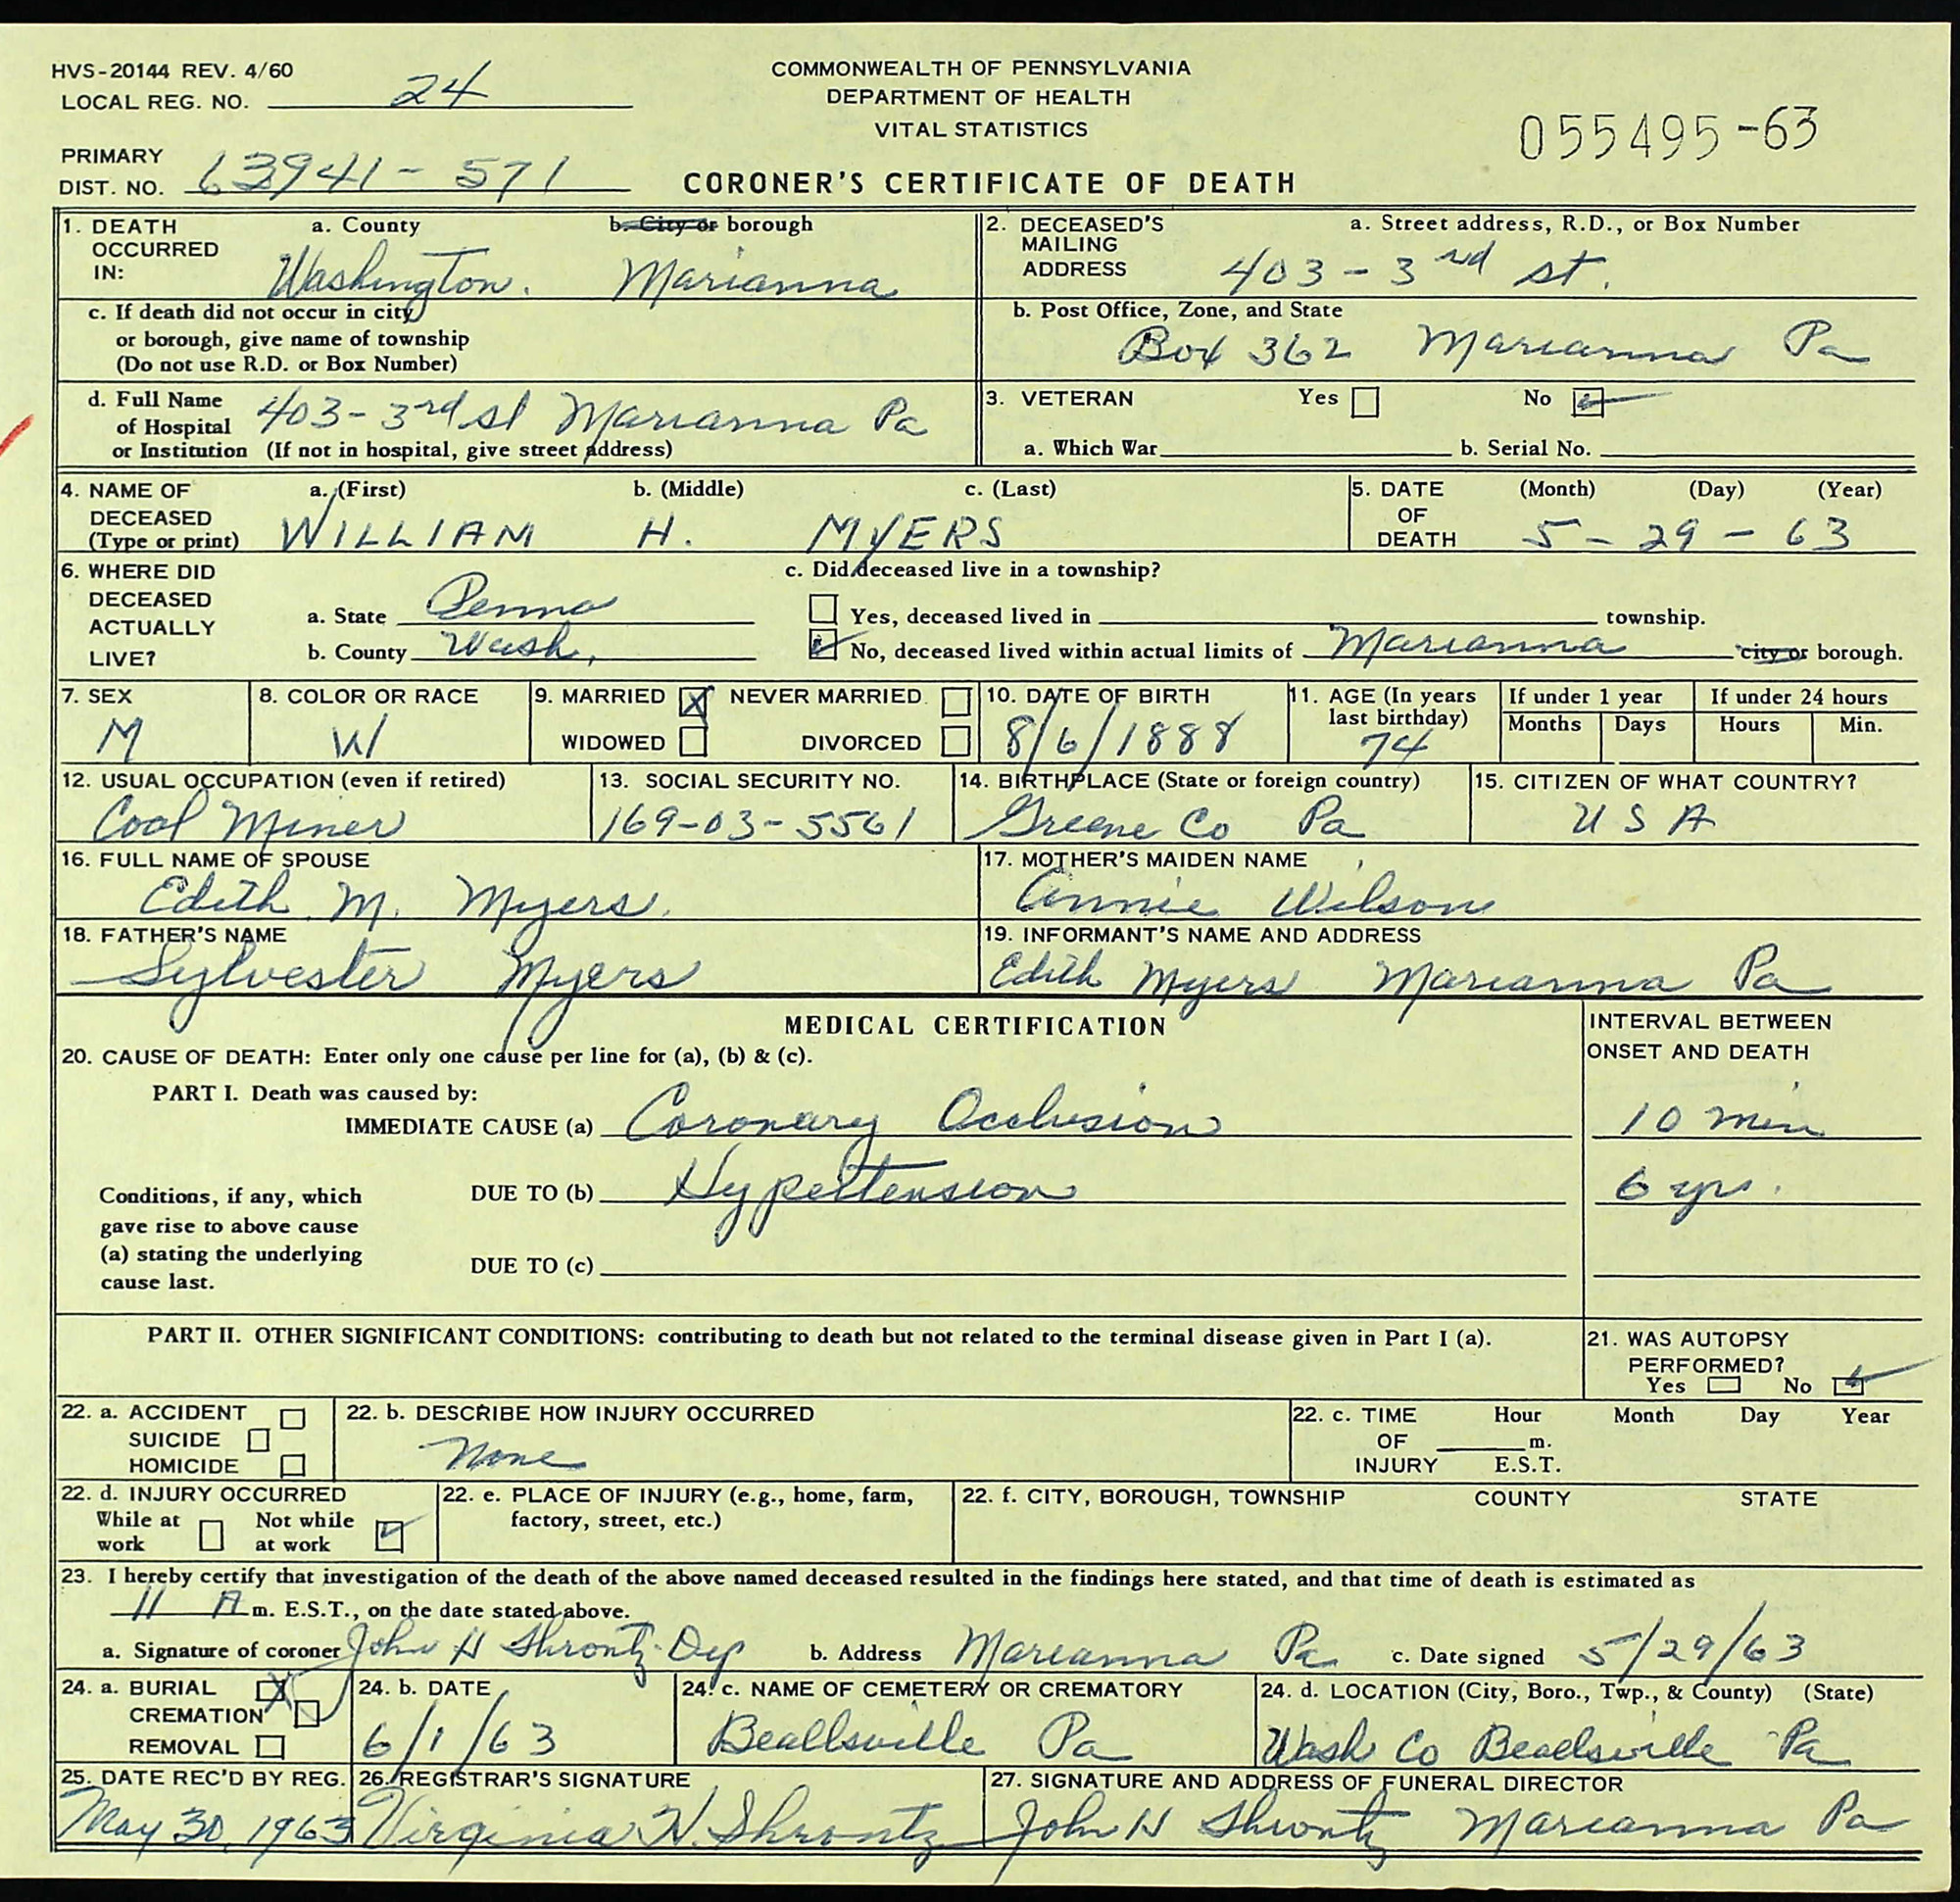 HVS-20144 REV. 4/60
LOCAL REG. NO. 24
COMMONWEALTH OF PENNSYLVANIA
DEPARTMENT OF HEALTH
VITAL STATISTICS
055495-63
PRIMARY
DIST. NO. 63941-571
CORONER'S CERTIFICATE OF DEATH
1. DEATH OCCURRED IN: a. County b. City or borough
Washington. Marianna
2. DECEASED'S MAILING ADDRESS a. Street address, R.D., or Box Number
403-3rd st.
c. If death did not occur in city
or borough, give name of township
(Do not use R.D. or Box Number)
b. Post Office, Zone, and State
Box 362 Marianna Pa
d. Full Name
of Hospital 403-3rd st Marianna Pa
or Institution (If not in hospital, give street address)
3. VETERAN Yes No
a. Which War b. Serial No.
4. NAME OF DECEASED (Type or print) a. (First) b. (Middle) c. (Last)
WILLIAM H. MYERS
5. DATE OF DEATH (Month) (Day) (Year)
5-29-63
6. WHERE DID DECEASED ACTUALLY LIVE?
a. State Penna
b. County Wash,
c. Did deceased live in a township?
Yes, deceased lived in township.
No, deceased lived within actual limits of Marianna city or borough.
7. SEX
M
8. COLOR OR RACE
W
9. MARRIED X NEVER MARRIED
WIDOWED DIVORCED
10. DATE OF BIRTH
8/6/1888
11. AGE (In years
last birthday)
74
If under 1 year
Months Days
If under 24 hours
Hours Min.
12. USUAL OCCUPATION (even if retired)
Coal Miner
13. SOCIAL SECURITY NO.
169-03-5561
14. BIRTHPLACE (State or foreign country)
Greene Co Pa
15. CITIZEN OF WHAT COUNTRY?
USA
16. FULL NAME OF SPOUSE
Edith M. Myers.
17. MOTHER'S MAIDEN NAME
Annie Wilson
18. FATHER'S NAME
Sylvester Myers
19. INFORMANT'S NAME AND ADDRESS
Edith Myers Marianna Pa
MEDICAL CERTIFICATION
INTERVAL BETWEEN
ONSET AND DEATH
20. CAUSE OF DEATH: Enter only one cause per line for (a), (b) & (c).
PART I. Death was caused by:
IMMEDIATE CAUSE (a) Coronary Occlusion 10 min
Conditions, if any, which
gave rise to above cause
(a) stating the underlying
cause last.
DUE TO (b) Hypertension 6 yrs.
DUE TO (c)
PART II. OTHER SIGNIFICANT CONDITIONS: contributing to death but not related to the terminal disease given in Part I (a).
21. WAS AUTOPSY
PERFORMED?
Yes No
22. a. ACCIDENT
SUICIDE
HOMICIDE
22. b. DESCRIBE HOW INJURY OCCURRED
None
22. c. TIME OF INJURY Hour Month Day Year
m.
E.S.T.
22. d. INJURY OCCURRED
While at work Not while at work
22. e. PLACE OF INJURY (e.g., home, farm,
factory, street, etc.)
22. f. CITY, BOROUGH, TOWNSHIP COUNTY STATE
23. I hereby certify that investigation of the death of the above named deceased resulted in the findings here stated, and that time of death is estimated as
11 A m. E.S.T., on the date stated above.
a. Signature of coroner John H Shrontz-Dep b. Address Marianna Pa c. Date signed 5/29/63
24. a. BURIAL X
CREMATION
REMOVAL
24. b. DATE
6/1/63
24. c. NAME OF CEMETERY OR CREMATORY
Beallsville Pa
24. d. LOCATION (City, Boro., Twp., & County) (State)
Wash Co Beallsville Pa
25. DATE REC'D BY REG.
May 30, 1963
26. REGISTRAR'S SIGNATURE
Virginia H. Shrontz
27. SIGNATURE AND ADDRESS OF FUNERAL DIRECTOR
John H Shrontz Marianna Pa